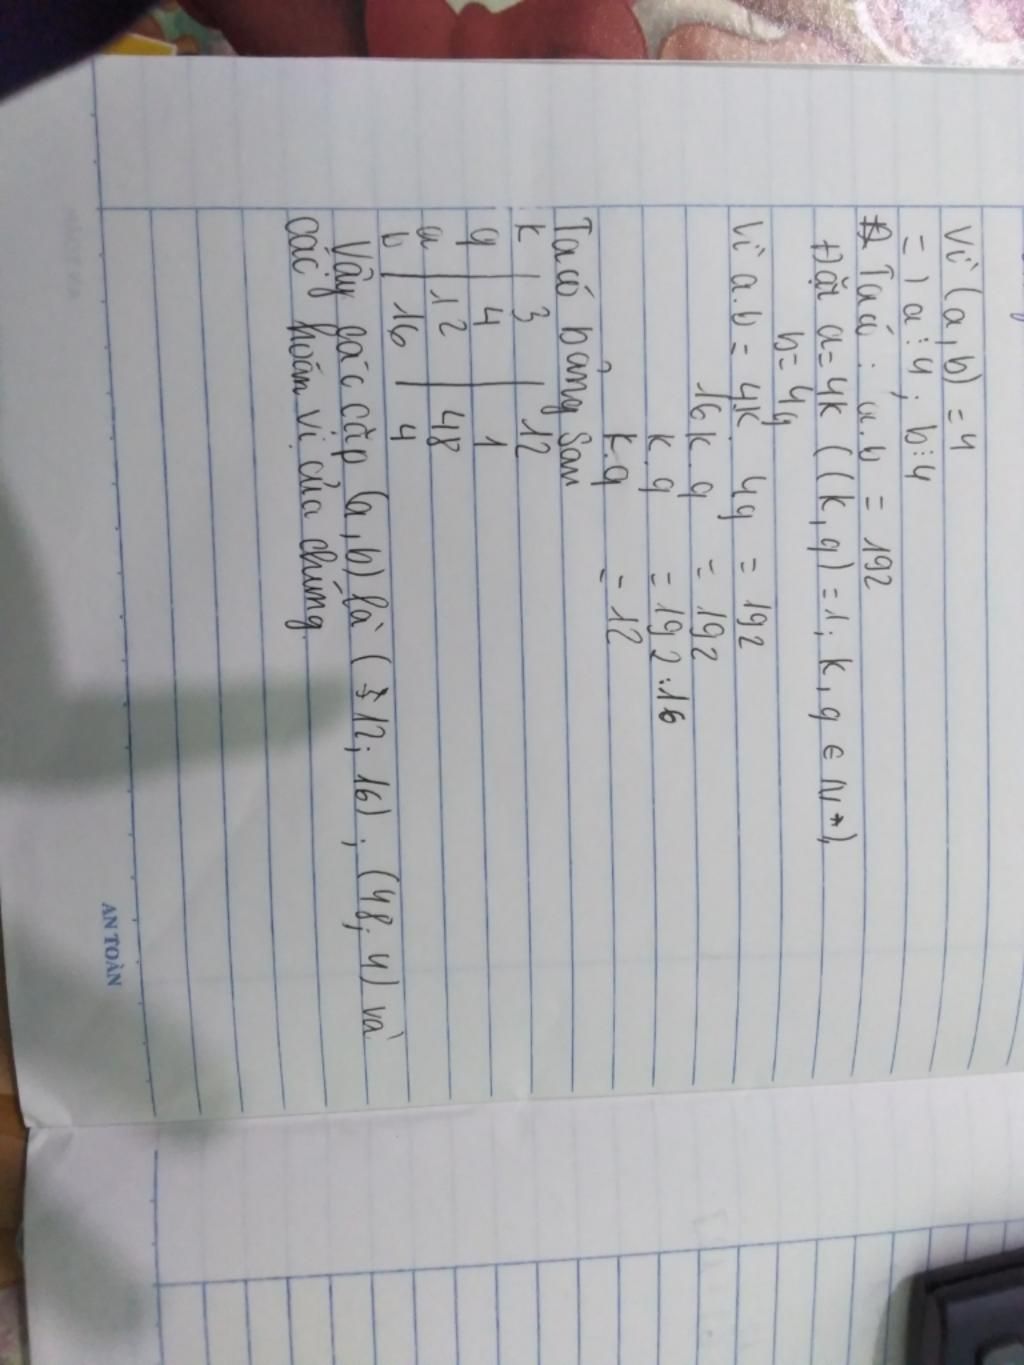 Vì (a,b) = 4
=) a ⋮ 4; b ⋮ 4
Ta có: a.b = 192
Đặt a = 4k ((k,q) = 1; k,q ∈ N*)
b = 4q
Vì a.b = 4k. 4q = 192
16k.q = 192
k.q = 192:16
k.q = 12
Ta có bảng sau
k | 3 | 12
q | 4 | 1
a | 12 | 48
b | 16 | 4
Vậy các cặp (a,b) là (12; 16); (48; 4) và
các hoán vị của chúng.
AN TOÀN